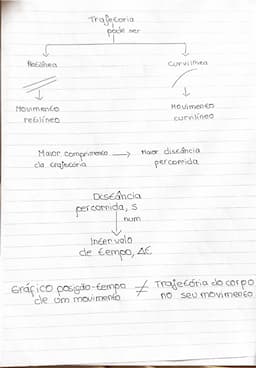 Trajetória
pode ser
Retilínea
Curvilínea
Movimento
retilíneo
Movimento
curvilíneo
Maior comprimento → Maior distância
da trajetória percorrida
Distância
percorrida, s
num
Intervalo
de tempo, Δt
Gráfico posição-tempo ≠ Trajetória do corpo
de um movimento no seu movimento